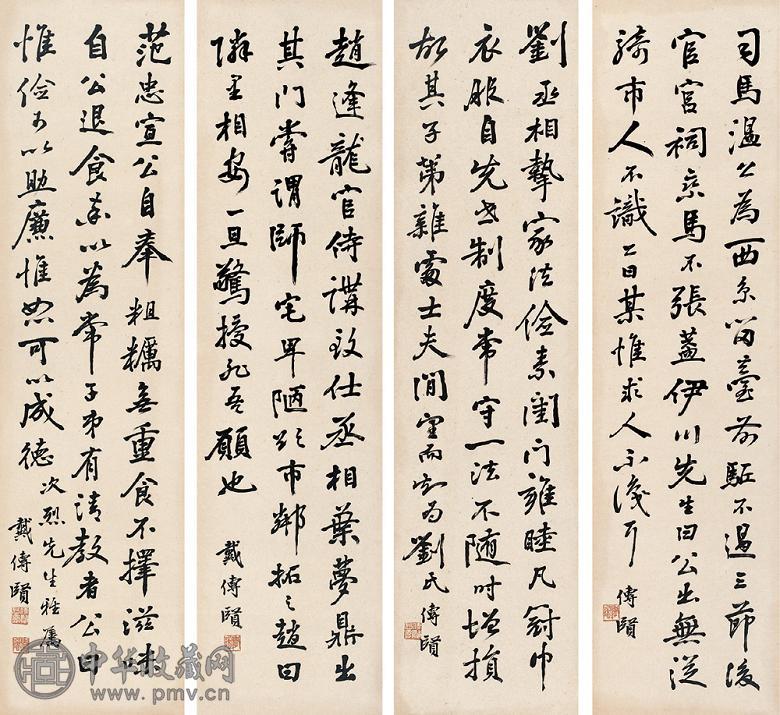 司馬温公為西京留臺前駈不過三節後
官官祠乘馬不張蓋伊川先生曰公出無從
騎市人不識公曰某惟求人不識耳
傳賢
劉丞相摯家法儉素閨門雍睦凡冠巾
衣服自先世制度常守一法不隨时增損
故其子弟雜處士夫間望而知为劉氏
傳賢
趙逢龍官侍講致仕丞相葉夢鼎出
其门嘗謂師宅卑陋欲市鄰拓之趙曰
隣里相安一旦驚授非吾願也
戴傳賢
范忠宣公自奉粗糲無重食不擇滋味
自公退食率以為常子弟有请教者公曰
惟儉可以助廉惟恕可以成德
次烈先生雅属
戴傳賢
中华收藏网
www.pmv.cn